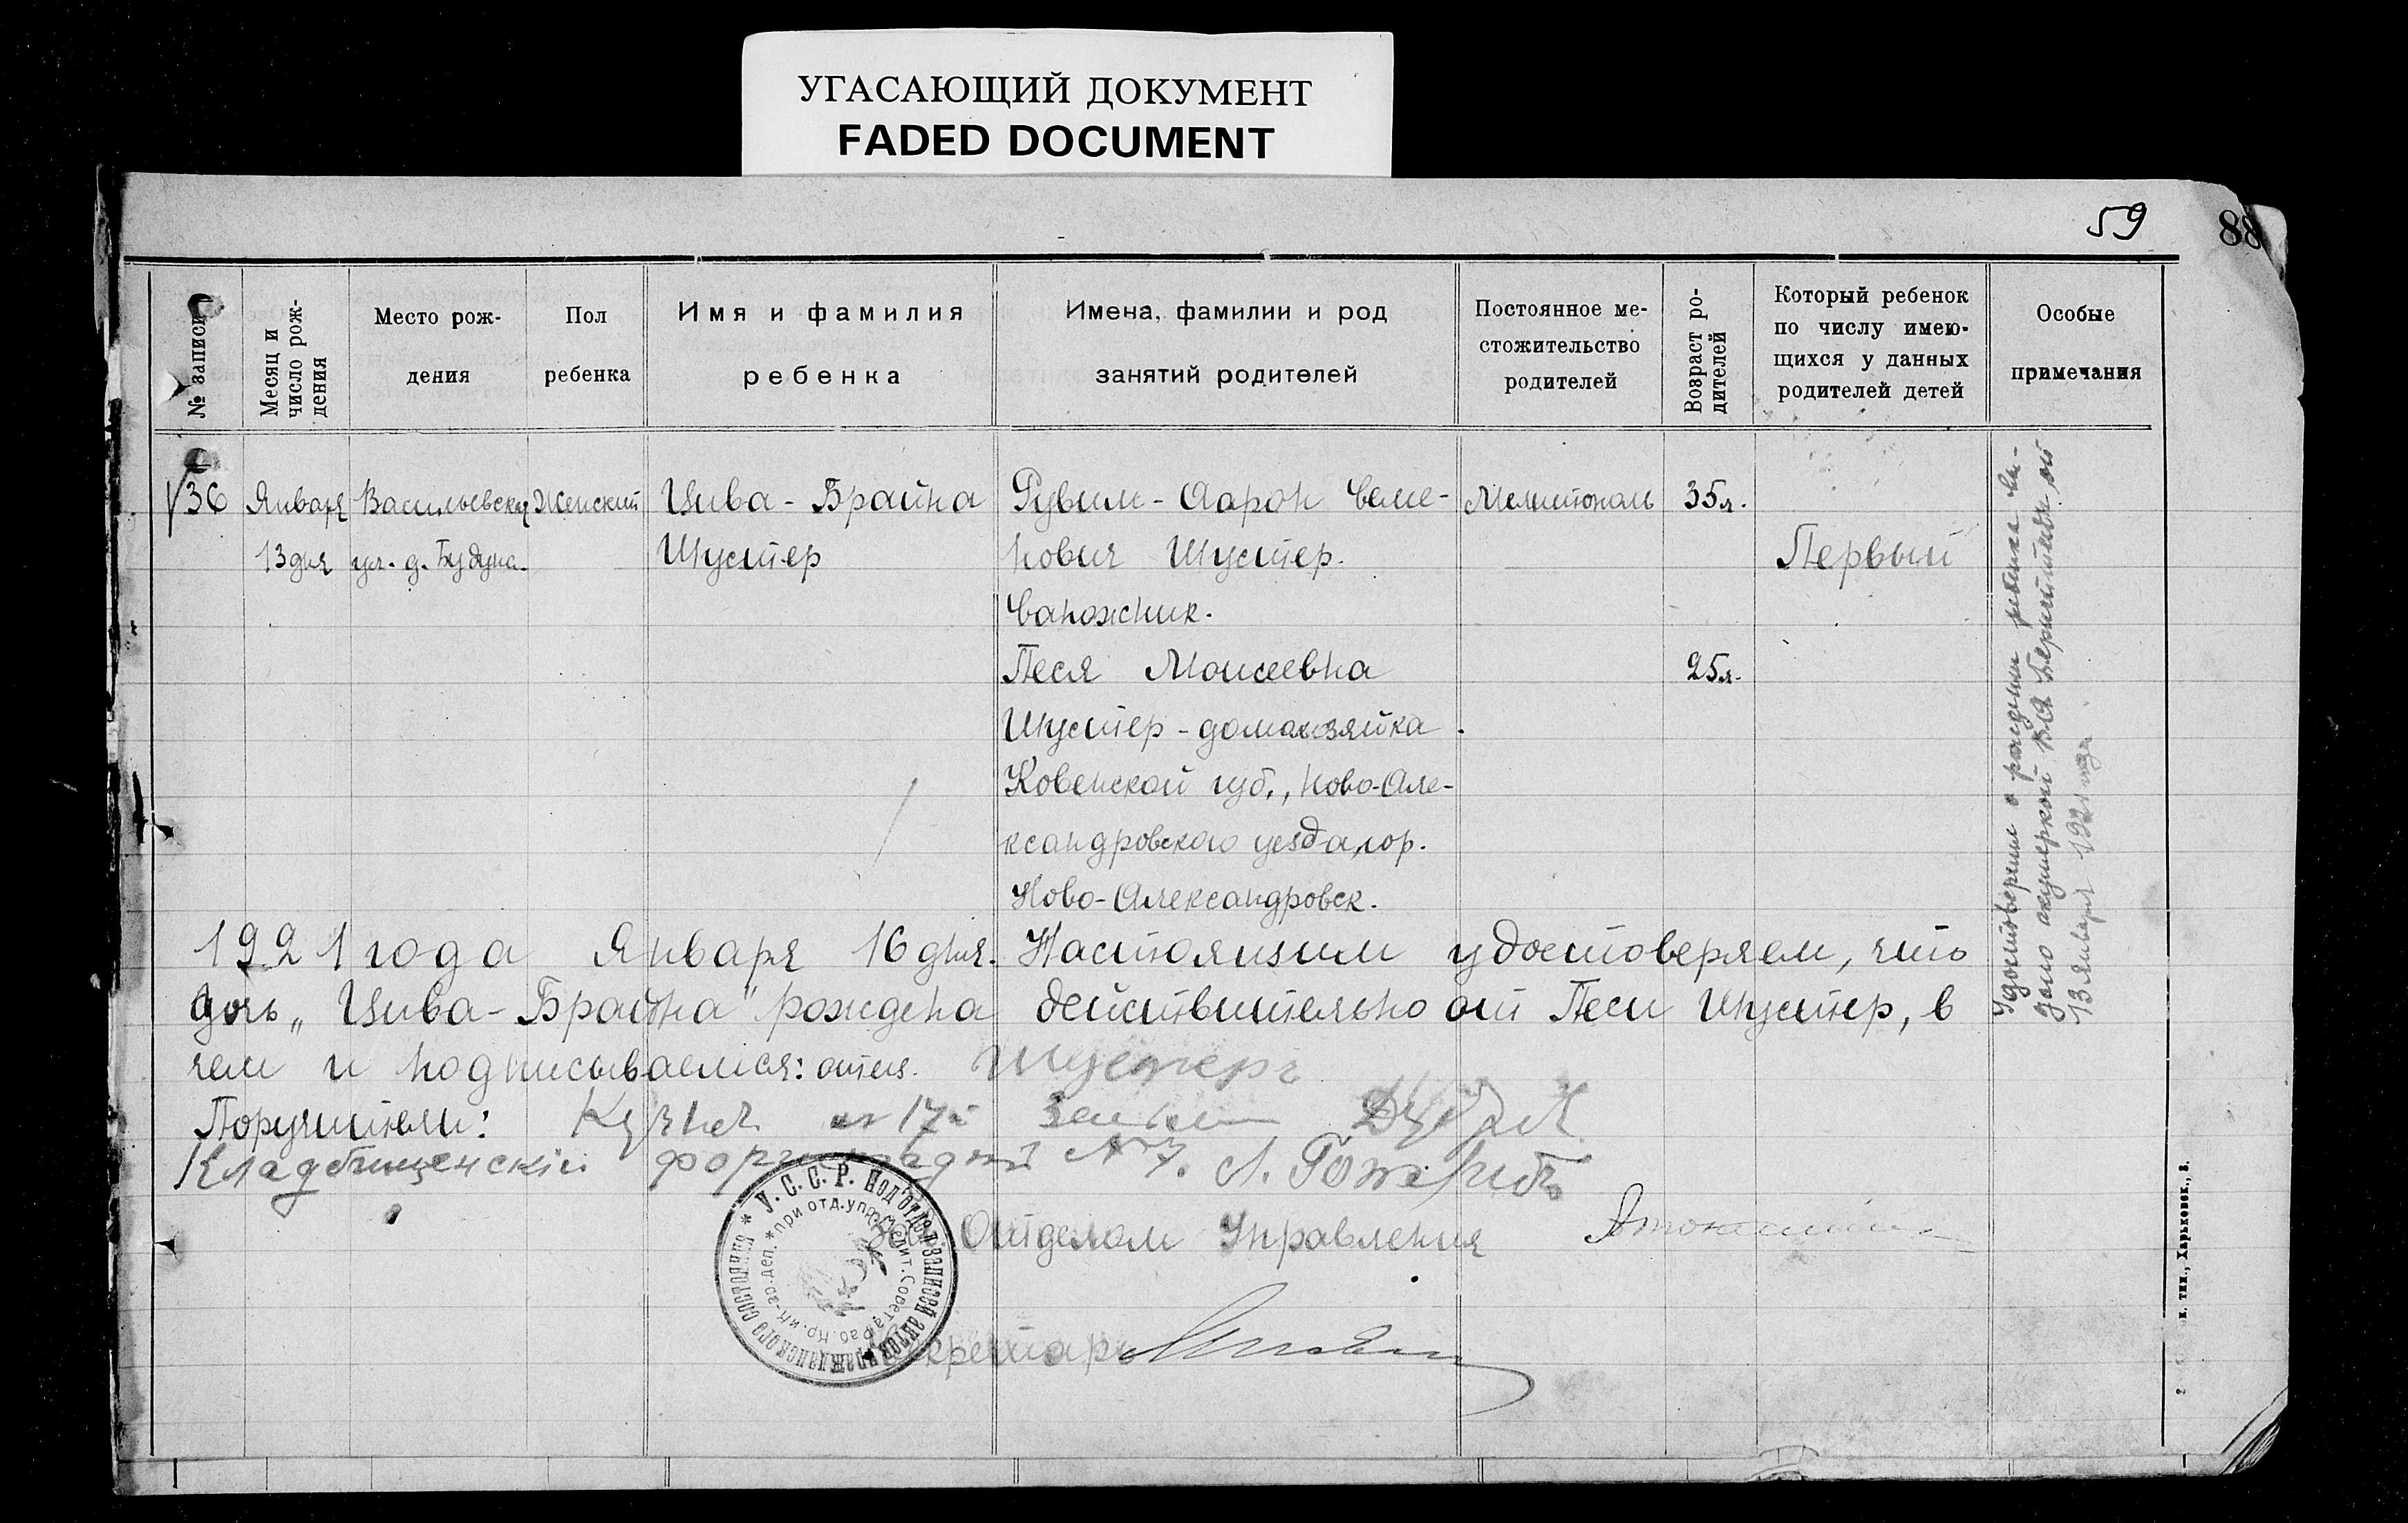 УГАСАЮЩИЙ ДОКУМЕНТ
FADED DOCUMENT
59
88
№ записи
Месяц и число рождения
Место рождения
Пол ребенка
Имя и фамилия ребенка
Имена, фамилии и род занятий родителей
Постоянное местожительство родителей
Возраст родителей
Который ребенок по числу имеющихся у данных родителей детей
Особые примечания
36 Января Васильевская Женский Цива-Брайна Рувим-Аарон Веме- Мелитополь 35л.
13 дня ул. д. Будуна. Шустер нович Шустер. Первый
Сапожник.
Песя Моисеевна 25л.
Шустер - домохозяйка.
Ковенской губ., Ново-Але-
ксандровского уезда, гор.
Ново-Александровск.
Удостоверение о рождении
акушеркой
13 января 1921 года.
1921 года Января 16 дня. Настоящим удостоверяем, что
дочь „Цива-Брайна" рождена действительно от Песи Шустер, в
чем и подписываемся: отец. Шустеръ
Поручители: 17
Кладбищенский №7.
Отделом Управления
Секретарь
* У. С. С. Р. Под'отдел записей актов гражданского состояния
* при отд. упр. Мелит. Совета Раб. Кр. и Кр-ар. деп.
тип., Харьковск., 8.